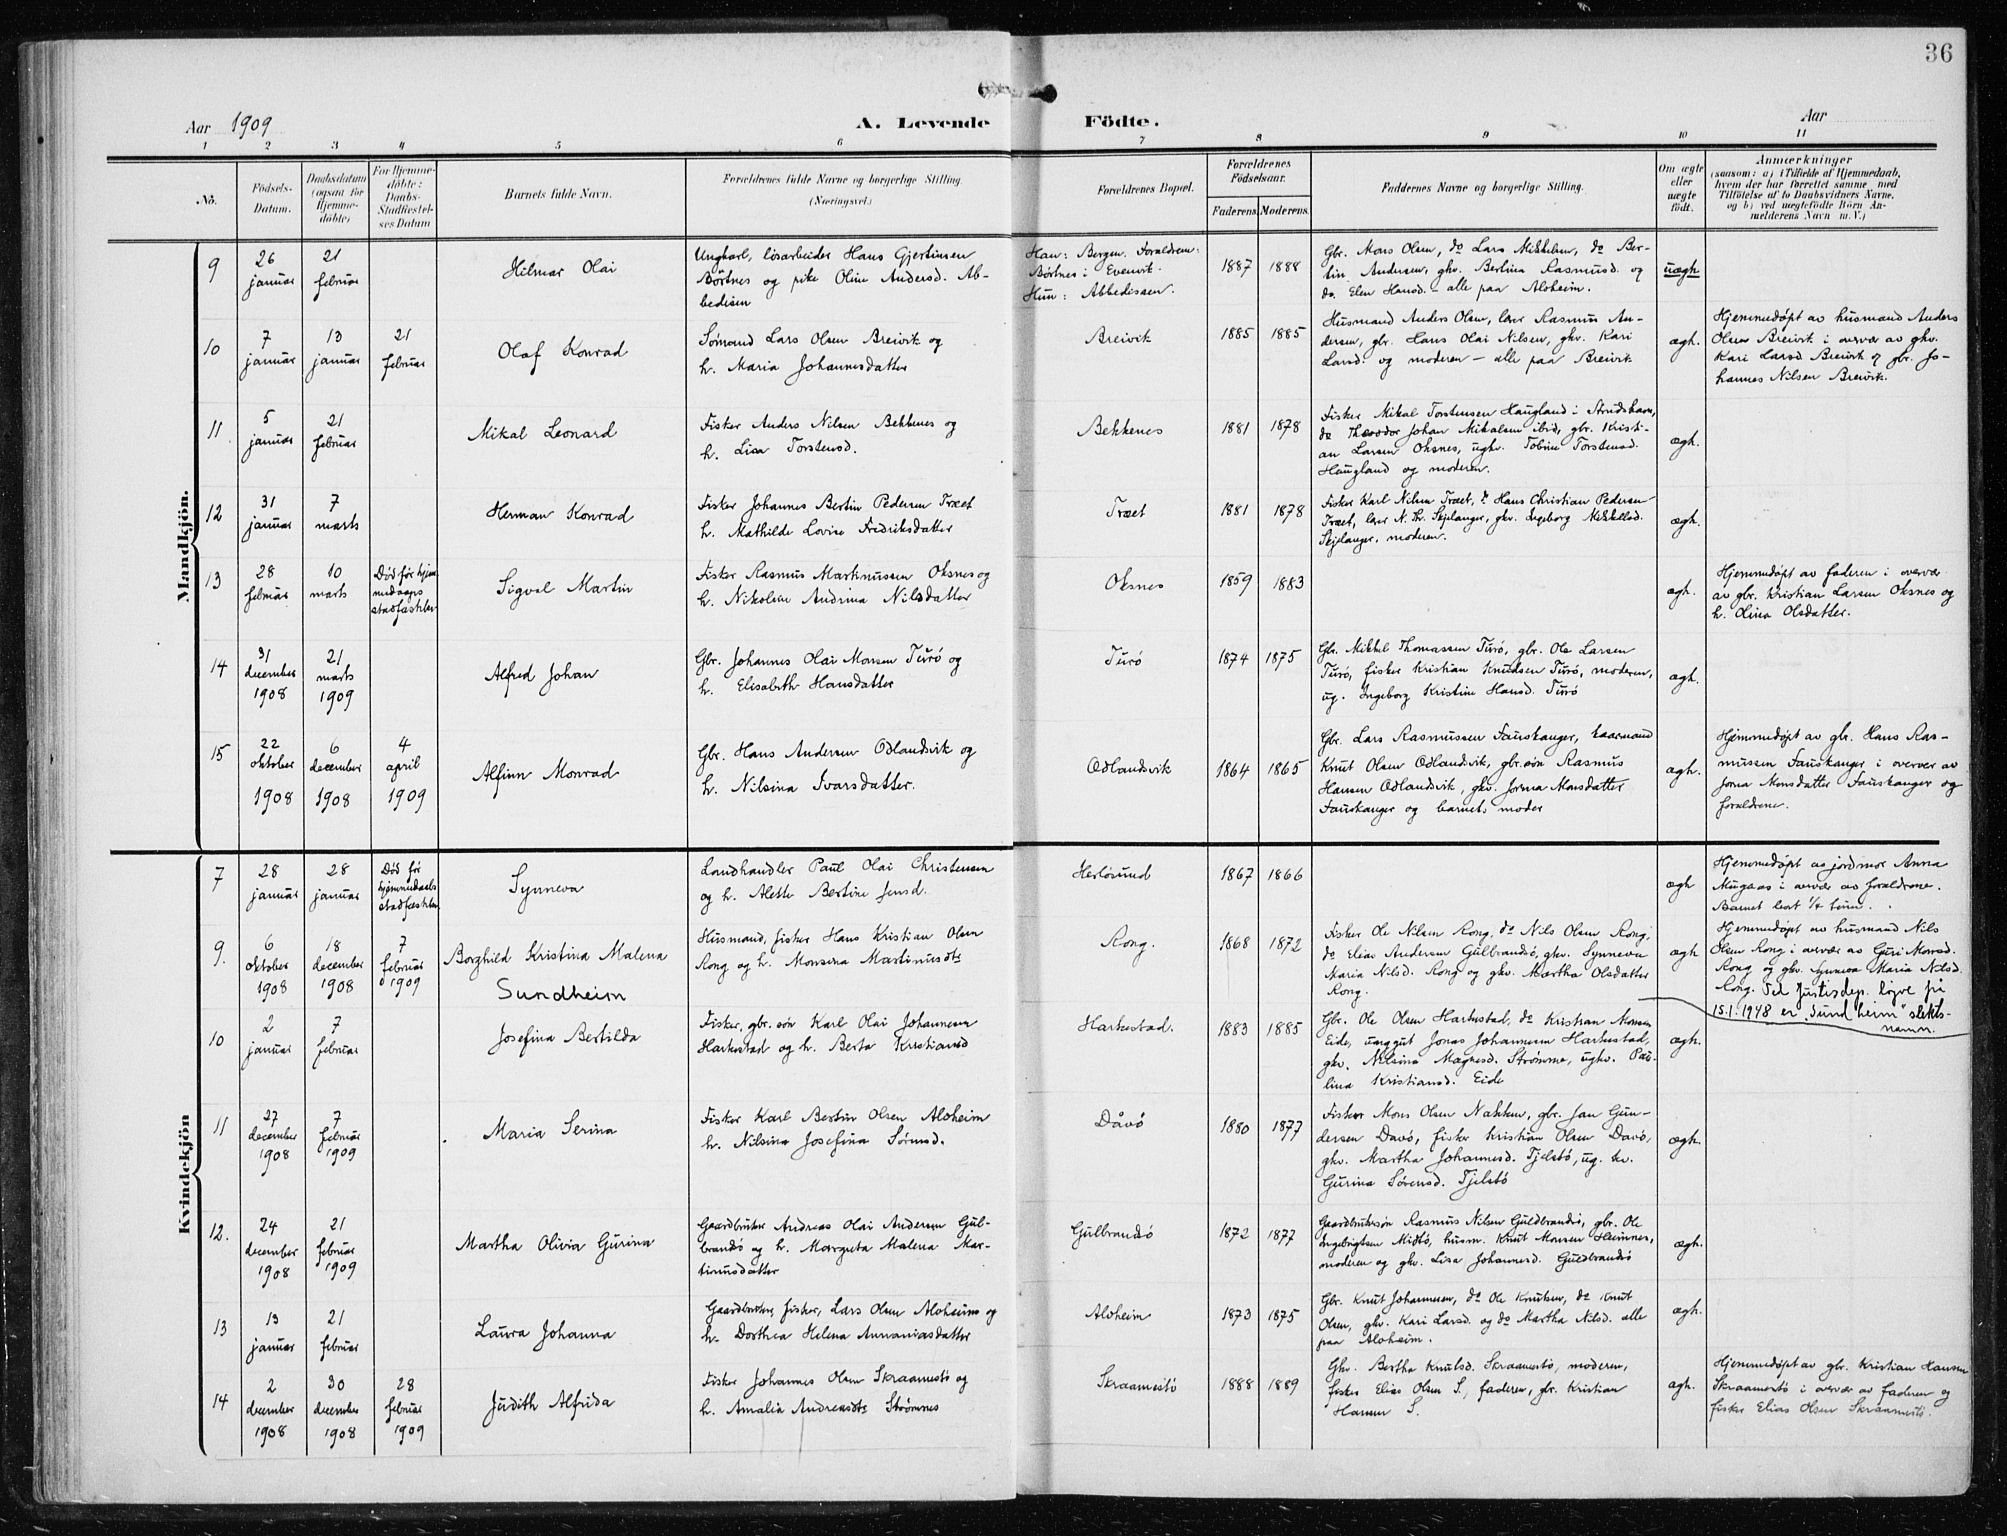 36
Aar 1909
A. Levende Födte.
Aar
1 2 3 4 5 6 7 8 9 10 11
No.
Födsels-
Datum.
Daabsdatum
(ogsaa for
Hjemme-
döbte)
For Hjemme-
döbte:
Daabs-
Stadfæstel-
ses Datum
Barnets fulde Navn.
Forældrenes fulde Navne og borgerlige Stilling.
(Næringsvei.)
Forældrenes Bopæl.
Forældrenes
Födselsaar.
Faderens. Moderens.
Faddernes Navne og borgerlige Stilling.
Om ægte
eller
uægte
födt.
Anmærkninger
(saasom: a) i Tilfælde af Hjemmedaab,
hvem der har forrettet samme med
Tilföielse af to Daabsvidners Navne,
og b) ved uægtefödte Börn An-
melderens Navn m. V.)
Mandkjön.
9
26
januar
21
februar
Hilmar Olai
Ungkarl, løsarbeider Hans Gjertinsen
Børtnes og pike Oline Andersd. Ab-
bedisen
Han: Bergen. Foraldrene:
Børtnes i Evenvik.
Hun: Abbedissen.
1887 1888
Gbr. Mons Olsen, do Lars Mikkelsen, do Ber-
tin Andersen, ghv. Bertina Rasmusd. og
do. Elen Hansd. - alle paa Aloheim.
uægh
10
7
januar
13
januar
21
februar
Olaf Konrad
Sømand Lars Olsen Breivik og
h. Maria Johannesdatter
Breivik
1885 1885
Husmand Anders Olsen, lærer Rasmus An-
dersen, gbr. Hans Olai Nilsen, ghv. Kari
Larsd. og moderen - alle paa Breivik.
ægh.
Hjemmedøpt av husmand Anders
Olsen Breivik i overvær av ghv.
Kari Larsd Breivik og gbr. Jo-
hannes Nilsen Breivik.
11
5
januar
21
februar
Mikal Leonard
Fisker Anders Nilsen Bekkenes og
h. Lisa Torstensd.
Bekkenes
1881 1878
Fisker Mikal Torstensen Haugland i Strudshavn,
do Theodor Johan Mikalsen ibid, gbr. Kristi-
an Larsen Oksnes, ughv. Tobine Torstensd.
Haugland og moderen.
ægh.
12
31
januar
7
marts
Herman Konrad
Fisker Johannes Bertin Pedersen Træet
h. Mathilde Lovise Fredriksdatter
Træet
1881 1878
Fisker Karl Nilsen Træet, do Hans Christian Pedersen
Træet, lærer N. Th. Skjelanger, ghv. Ingeborg Mikkelsd.
Skjelanger, moderen.
ægh.
13
28
februar
10
marts
Død før hjem
medaaps
stadfæstelsen
Sigval Martin
Fisker Rasmus Martinussen Oksnes og
h. Nikoline Andrina Nilsdatter
Oksnes
1859 1883
ægh.
Hjemmedøpt av faderen i overvær
av gbr. Kristian Larsen Oksnes og
h. Olina Olsdatter.
14
31
december
1908
21
marts
1909
Alfred Johan
Gbr. Johannes Olai Monsen Turø og
h. Elisabeth Hansdatter
Turø
1874 1875
Gbr. Mikkel Thomassen Turø, gbr. Ole Larsen
Turø, fisker Kristian Knudsen Turø, moderen,
ug. Ingeborg Kristine Hansd. Turø
ægh.
15
22
oktober
1908
6
december
1908
4
april
1909
Alfinn Monrad
Gbr. Hans Andersen Odlandsvik og
h. Nilsina Ivarsdatter.
Odlandsvik
1864 1865
Gbr. Lars Rasmussen Fauskanger, kaarmand
Knut Olsen Odlandsvik, gbr.søn Rasmus
Hansen Odlandsvik, ghv. Jorina Monsdatter
Fauskanger og barnets moder
ægh.
Hjemmedøpt av gbr. Hans Ras-
mussen Fauskanger i overvær av
Jorina Monsdatter Fauskanger og
foraldrene.
Kvindekjön
7
28
januar
28
januar
Død før
hjemmedaabs
stadfæstelsen
Synneva
Landhandler Paul Olai Christensen
og h. Alette Bertine Jensd.
Herløsund
1867 1866
ægh
Hjemmedøpt av jordmor Anna
Mugaas i overvær av foraldrene.
Barnet levet 1/4 time.
9.
6
oktober
1908
18
december
1908
7
februar
1909
Borghild Kristina Malena
Sundheim
Husmand, fisker Hans Kristian Olsen
Rong og h. Monsina Martinusdtr
Rong.
1868 1872
Fisker Ole Nilsen Rong, do Nils Olsen Rong,
do Elias Andersen Gulbrandsø, ghv. Synneva
Maria Nilsd. Rong og ghv. Martha Olsdatter
Rong.
ægh
Hjemmedøpt av husmand Nils
Olsen Rong i overvær av Guri Monsd.
Rong og ghv. Synneva Maria Nilsd.
Rong. Ved Justisdep. løyve frå
15.1.1948 er "Sundheim" slekts-
namn.
10
2
januar
7
februar
Josefina Bertilda
Fisker, gbr.søn Karl Olai Johannesen
Harkestad og h. Berta Kristiansd
Harkestad.
1883 1885
Gbr. Ole Olsen Harkestad, do Kristian Monsen
Eide, unggut Jonas Johannesen Harkestad,
ghv. Nilsina Magnesd. Strømme, ughv. Pau-
lina Kristiansd. Eide
ægh.
11
27
december
1908
7
februar
1909
Maria Serina
Fisker Karl Bertin Olsen Aloheim
h. Nilsina Josefina Sørensd.
Dåvø
1880 1877
Fisker Mons Olsen Nakken, gbr. Jan Gun-
dersen Davø, fisker Kristian Olsen Davø,
ghv. Martha Johannesd. Tjelstø, ug. kv.
Gurina Sørensd. Tjelstø
ægh.
12.
24
december
1908
21
februar
1909
Martha Olivia Gurina
Gaardbruker Andreas Olai Andersen Gul-
brandsø og h. Margreta Malena Mar-
tinusdatter
Gulbrandsø
1872 1877
Gaardbrukersøn Rasmus Nilsen Guldbrandsø, gbr. Ole
Ingebrigtsen Midtø, husm. Knut Monsen Heimnes,
moderen og ghv. Lisa Johannesd. Guldbrandsø
ægh.
13
13
januar
21
februar
Laura Johanna
Gaardbruker, fisker, Lars Olsen Aloheim og
h. Dorthea Helena Annaniasdatter
Aloheim
1873 1875
Gbr. Knut Johannesen, do Ole Knutsen, do Knut
Olsen, ghv. Kari Larsd. og do Martha Nilsd. alle
paa Aloheim.
ægh.
14
2
december
1908
30
december
1908
28
februar
1909
Judith Alfrida
Fisker Johannes Olsen Skraamestø og
h. Amalia Andreasdtr Strømnes
Skraamestø
1888 1889
Ghv. Bertha Knutsd. Skraamestø, moderen,
fisker Elias Olsen S., faderen, gbr. Kristian
Hansen S.
ægh.
Hjemmedøpt av gbr. Kristian Hansen
Skraamestø i overvær av faderen og
fisker Elias Olsen Skraamestø.